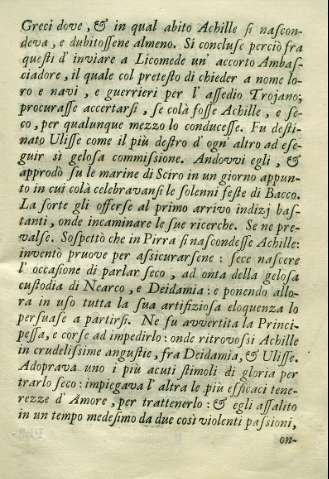 Greci dove, & in qual abito Achille si nascon-
deva, e dubitossene almeno. Si concluse perciò fra
questi d' inviare a Licomede un' accorto Ambas-
ciadore, il quale col pretesto di chieder a nome lo-
ro e navi, e guerrieri per l' assedio Trojano;
procurasse accertarsi, se colà fosse Achille, e se-
co, per qualunque mezzo lo conducesse. Fu desti-
nato Ulisse come il più destro d' ogn altro ad ese-
guir sì gelosa commissione. Andovvi egli, &
approdò su le marine di Sciro in un giorno appun-
to in cui colà celebravansi le solenni feste di Bacco.
La sorte gli offerse al primo arrivo indizj bas-
tanti, onde incaminare le sue ricerche. Se ne pre-
valse. Sospettò che in Pirra si nascondesse Achille:
inventò pruove per assicurarsene: fece nascere
l' occasione di parlar seco, ad onta della gelosa
custodia di Nearco, e Deidamia: e ponendo allo-
ra in uso tutta la sua artifiziosa eloquenza lo
persuase a partirsi. Ne fu avvertita la Princi-
pessa, e corse ad impedirlo: onde ritrovossi Achille
in crudelissime angustie, fra Deidamia, & Ulisse.
Adoprava uno i più acuti stimoli di gloria per
trarlo seco: impiegava l' altra le più efficaci tene-
rezze d' Amore, per trattenerlo: & egli assalito
in un tempo medesimo da due così violenti passioni,
on-